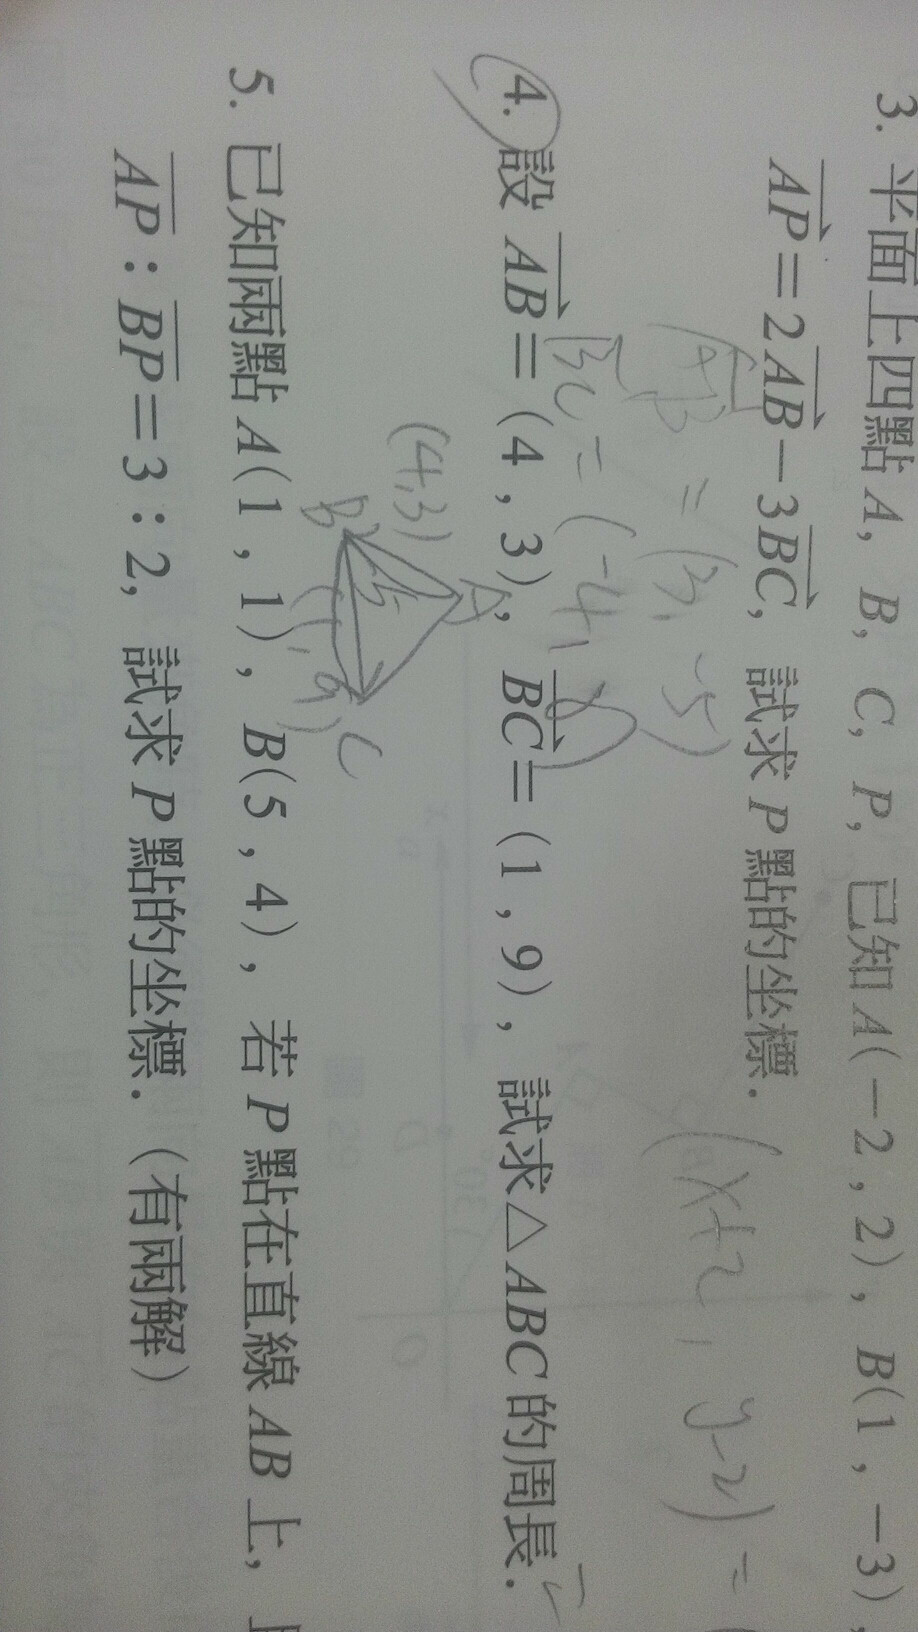 3. 平面上四點 A, B, C, P, 已知 A(-2, 2), B(1, -3),
AP=2AB-3BC, 試求 P 點的坐標.
AB = (3, -5) (x+2, y-2) =
BC = (-4,
4. 設 AB=(4, 3), BC=(1, 9), 試求△ABC的周長.
A
(4,3) B 5 C
(1,9)
5. 已知兩點 A(1, 1), B(5, 4), 若 P 點在直線 AB 上,
AP:BP=3:2, 試求 P 點的坐標. (有兩解)